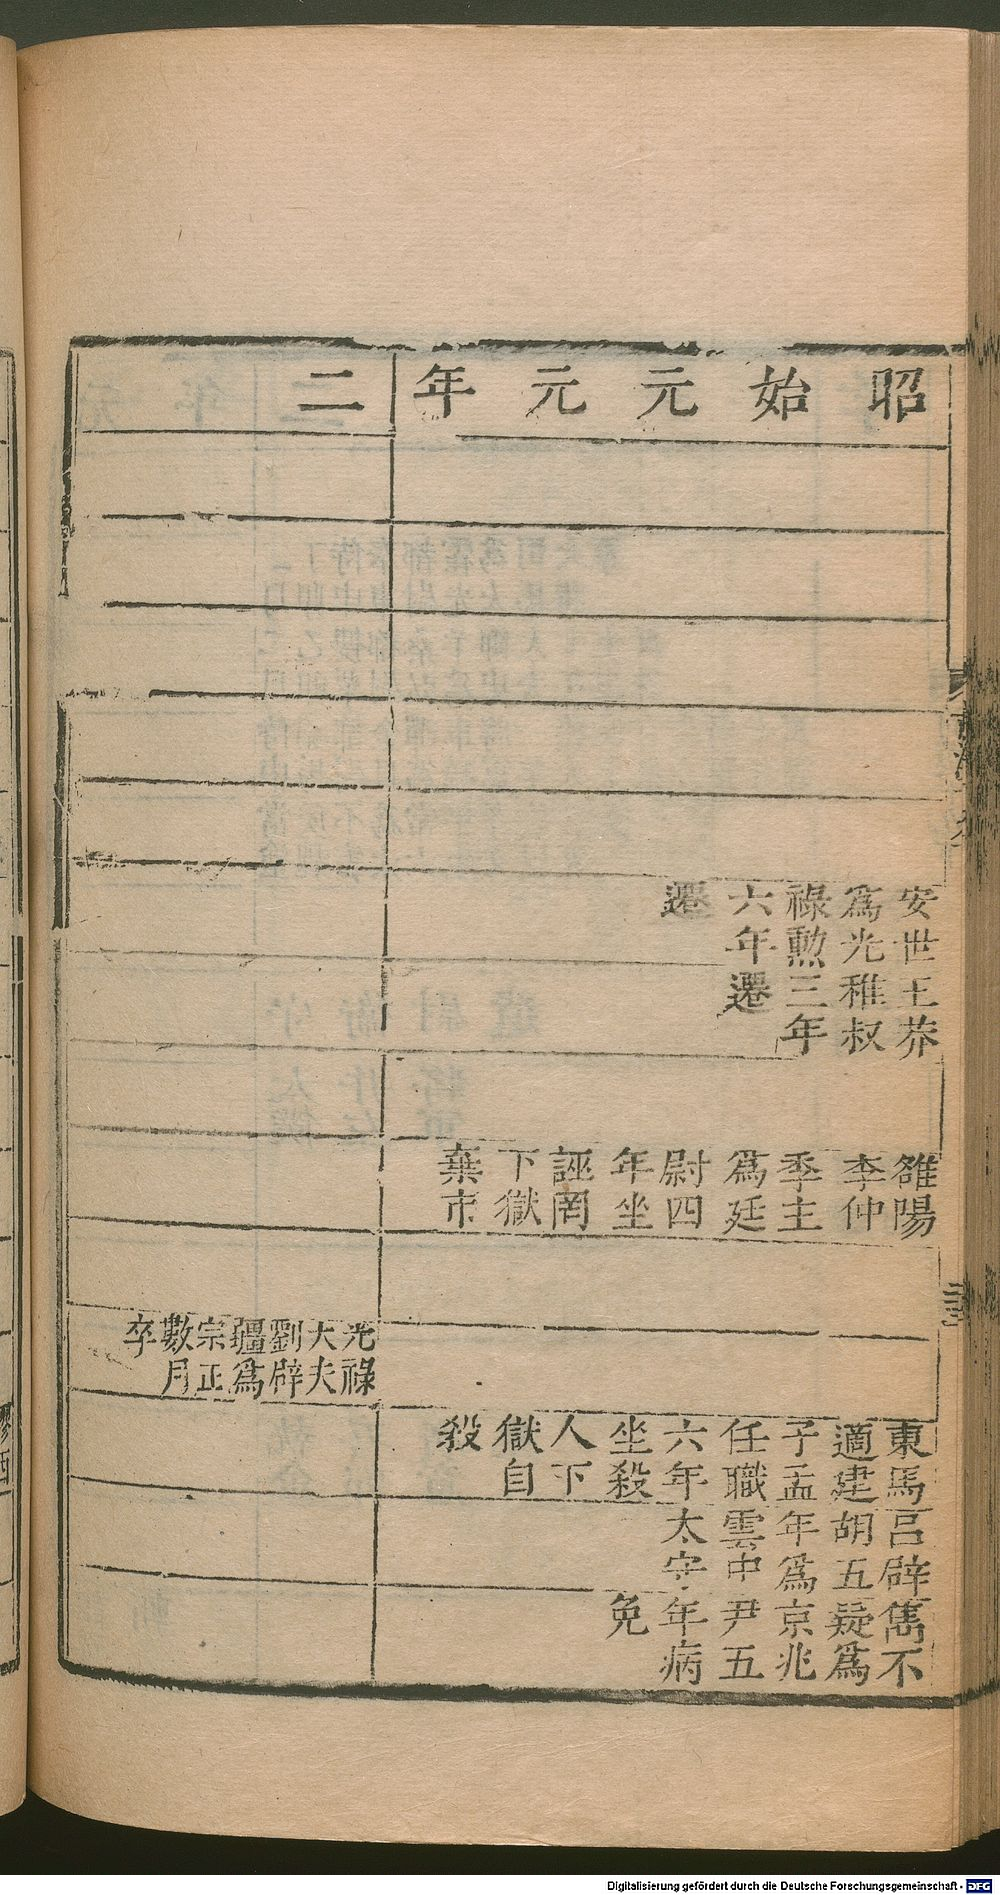 昭始元元年
二
安世
爲光
祿勲
六年
遷
王莽
稚叔
三年
遷
雒陽
李仲
季主
爲廷
尉四
年坐
誣罔
下獄
棄市
東馬
適建
子孟
任職
六年
坐殺
人下
獄自
殺
呂辟
胡五
年爲
雲中
太守
雋不
疑爲
京兆
尹五
年病
免
光祿
大夫
劉辟
疆爲
宗正
數月
卒
Digitalisierung gefördert durch die Deutsche Forschungsgemeinschaft - DFG